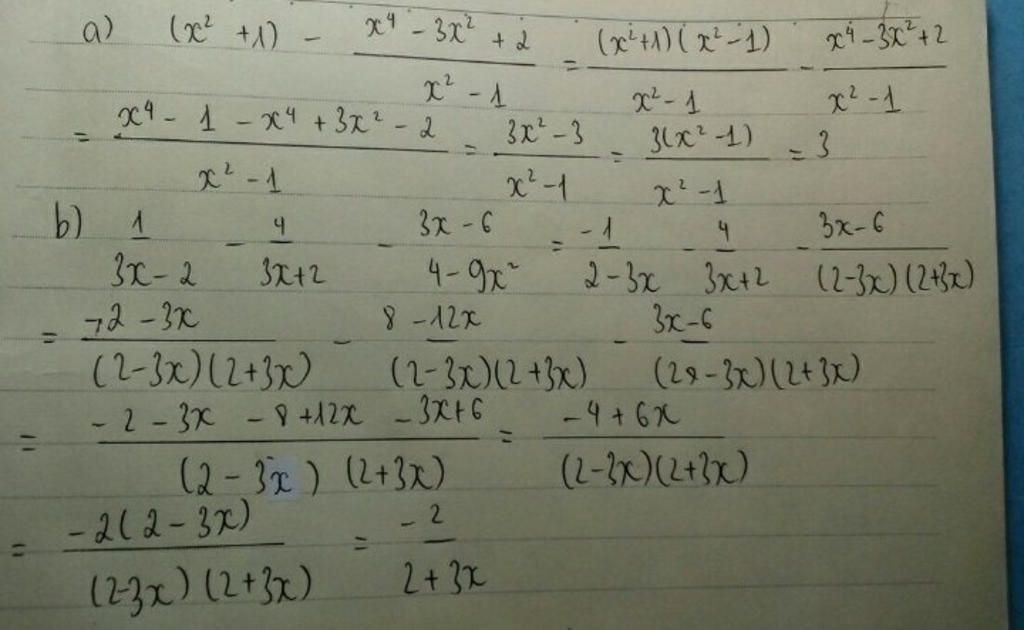 a) (x² + 1) - (x⁴ - 3x² + 2)/(x² - 1) = ((x²+1)(x²-1))/(x² - 1) - (x⁴ - 3x² + 2)/(x² - 1)
= (x⁴ - 1 - x⁴ + 3x² - 2)/(x² - 1) = (3x² - 3)/(x² - 1) = (3(x² - 1))/(x² - 1) = 3
b) 1/(3x - 2) - 4/(3x + 2) - (3x - 6)/(4 - 9x²) = -1/(2 - 3x) - 4/(3x + 2) - (3x - 6)/((2-3x)(2+3x))
= (-2 - 3x)/((2-3x)(2+3x)) - (8 - 12x)/((2-3x)(2+3x)) - (3x - 6)/((2-3x)(2+3x))
= (-2 - 3x - 8 + 12x - 3x + 6)/((2 - 3x)(2+3x)) = (-4 + 6x)/((2-3x)(2+3x))
= (-2(2 - 3x))/((2-3x)(2+3x)) = -2/(2 + 3x)